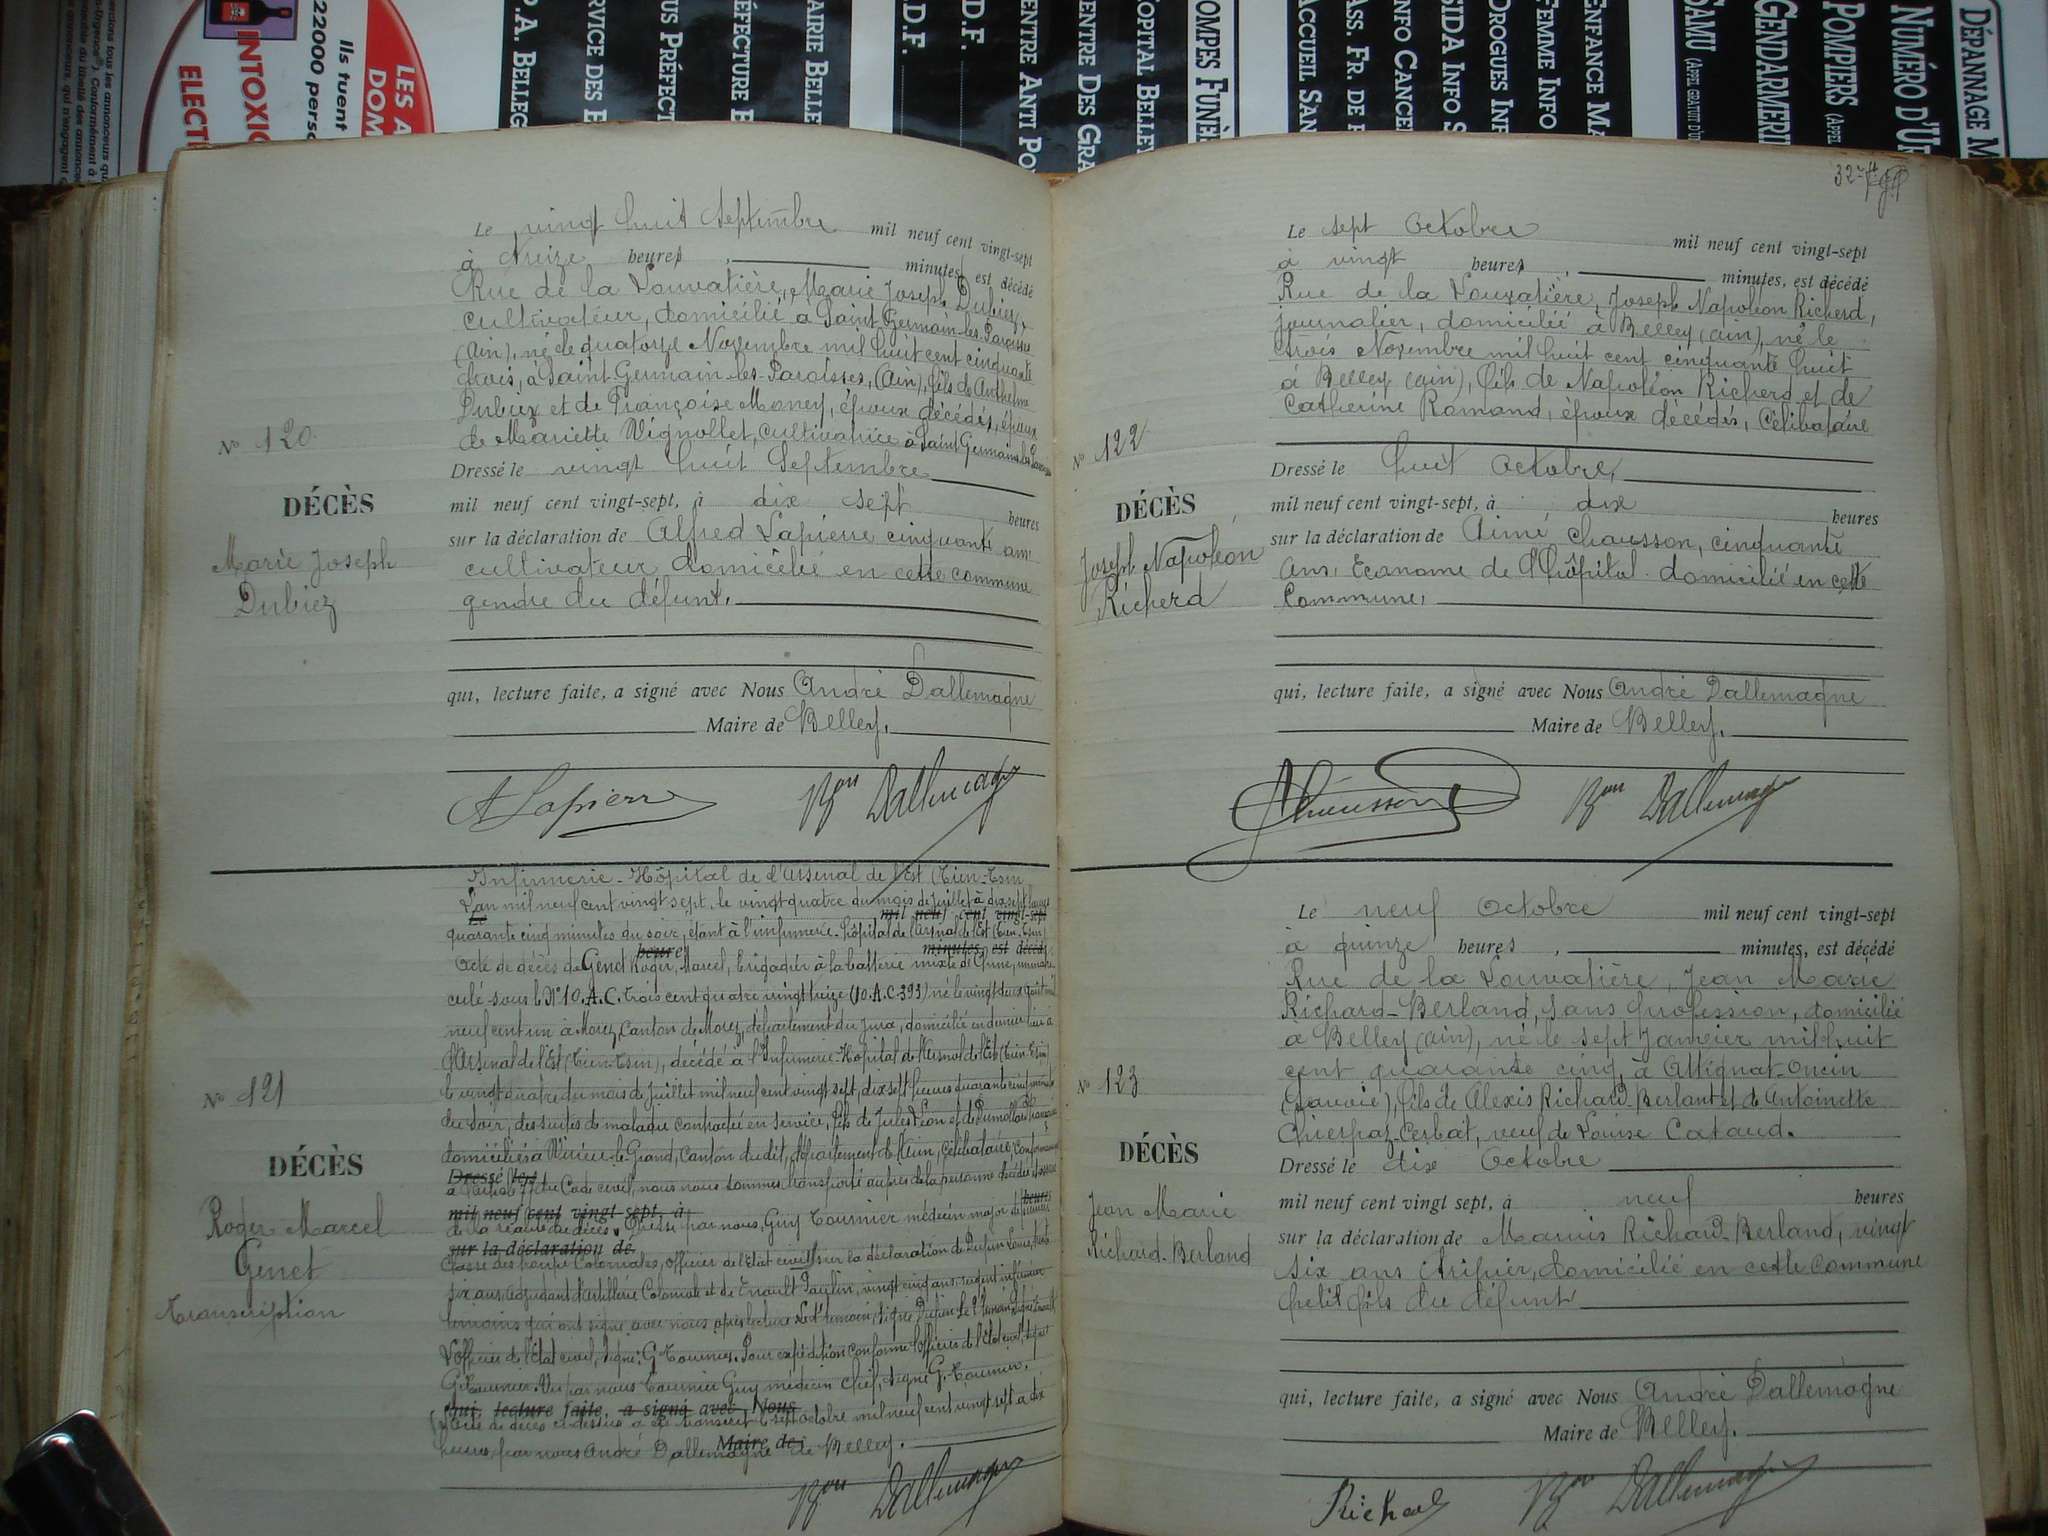 LES A
DOM
Ils tuent
22000 perso
INTOXIC
ELECT
P.A. BELLEG
RVICE DES E
US PRÉFECT
ÉFECTURE B
AIRIE BELLE
.D.F.
D.F.
ENTRE ANTI PO
ENTRE DES GRA
OPITAL BELLEY
OMPES FUNÈ
ACCUEIL SAN
ASS. FR. DE
NFO CANCE
SIDA INFO S
DROGUES INF
FEMME INFO
ENFANCE MA
SAMU (APPEL GRATUIT D'U
GENDARMERI
POMPIERS (APPEL
NUMÉRO D'UR
DÉPANNAGE M
Le vingt huit Septembre mil neuf cent vingt-sept
à treize heures, minutes, est décédé
Rue de la Louvatière, Marie Joseph Dubiez,
cultivateur, domicilié à Saint Germain-les-Paroisses
(Ain), né le quatorze Novembre mil huit cent cinquante
trois, à Saint-Germain-les-Paroisses, (Ain), fils de Anthelme
Dubiez et de Françoise Money, époux décédés, époux
de Mariette Vignollet, cultivatrice à Saint Germain les Paroisses
N° 120
Dressé le vingt huit Septembre
DÉCÈS
mil neuf cent vingt-sept, à dix sept heures
sur la déclaration de Alfred Lapierre cinquante ans
Marie Joseph
Dubiez
cultivateur domicilié en cette commune
gendre du défunt.
qui, lecture faite, a signé avec Nous André Dallemagne
Maire de Belley.
A Lapierre Bon Dallemagne
Infirmerie-Hôpital de l'Arsenal de l'Est (Tien-Tsin
L'an mil neuf cent vingt sept, le vingt quatre du mois de juillet à dix sept heures
Le mil neuf cent vingt-sept
quarante cinq minutes du soir, étant à l'infirmerie-hôpital de l'Arsenal de l'Est (Tien-Tsin)
heures minutes, est décédé
Acte de décès de Genet Roger, Marcel, brigadier à la batterie mixte de Chine, immatri-
culé sous le N° 10.A.C. trois cent quatre vingt treize (10.A.C.393) né le vingt deux août mil
neuf cent un à Morez, Canton de Morez, département du Jura, domicilié en dernier lieu à
l'Arsenal de l'Est (Tien-Tsin), décédé à l'Infirmerie-Hôpital de l'Arsenal de l'Est (Tien-Tsin)
le vingt quatre du mois de juillet mil neuf cent vingt sept, dix sept heures quarante cinq minutes
du soir, des suites de maladie contractée en service, fils de Jules Léon et de Dumollard
domiciliés à Virieu-le-Grand, Canton dudit, département de l'Ain, célibataire, conformément
N° 121
DÉCÈS
Dressé le
à l'article 77 du Code civil, nous nous sommes transporté auprès de la personne décédée et assuré
mil neuf cent vingt-sept, à heures
de la réalité du décès. Dressé par nous, Guy Tournier médecin major de première
sur la déclaration de
Roger Marcel
Genet
transcription
classe des troupes Coloniales, officier de l'état civil sur la déclaration de
six ans, adjudant d'Artillerie Coloniale et de Enault Paulin, vingt cinq ans, sergent infirmier
témoins qui ont signé avec nous après lecture
L'officier de l'état civil, signé: G Tournier. Pour expédition conforme l'officier de l'état civil, signé
G. Tournier. Vu par nous Tournier Guy médecin chef, signé G. Tournier.
qui, lecture faite, a signé avec Nous
L'acte de décès ci-dessus a été transcrit le sept octobre mil neuf cent vingt sept à dix
Maire de
heures, par nous André Dallemagne de Belley.
Bon Dallemagne
32
Le sept Octobre mil neuf cent vingt-sept
à vingt heures, minutes, est décédé
Rue de la Louvatière, Joseph Napoléon Richerd,
journalier, domicilié à Belley (Ain), né le
trois Novembre mil huit cent cinquante huit
à Belley (Ain), fils de Napoléon Richerd et de
Catherine Romand, époux décédés, Célibataire
N° 122
Dressé le huit Octobre,
DÉCÈS
mil neuf cent vingt-sept, à dix heures
sur la déclaration de Aimé Chausson, cinquante
Joseph Napoléon
Richerd
ans, Econome de l'hôpital domicilié en cette
Commune,
qui, lecture faite, a signé avec Nous André Dallemagne
Maire de Belley.
Chausson Bon Dallemagne
Le neuf Octobre mil neuf cent vingt-sept
à quinze heures, minutes, est décédé
Rue de la Louvatière, Jean Marie
Richard-Berland, sans profession, domicilié
à Belley (Ain), né le sept Janvier mil huit
cent quarante cinq, à Attignat-Oncin
(Savoie), fils de Alexis Richard-Berland et de Antoinette
Chierpaz-Cerbat, veuf de Louise Cataud.
N° 123
DÉCÈS
Dressé le dix Octobre
mil neuf cent vingt sept, à neuf heures
Jean Marie
Richard-Berland
sur la déclaration de Marius Richard-Berland, vingt
six ans tripier, domicilié en cette commune
petit fils du défunt
qui, lecture faite, a signé avec Nous André Dallemagne
Maire de Belley.
Richard Bon Dallemagne